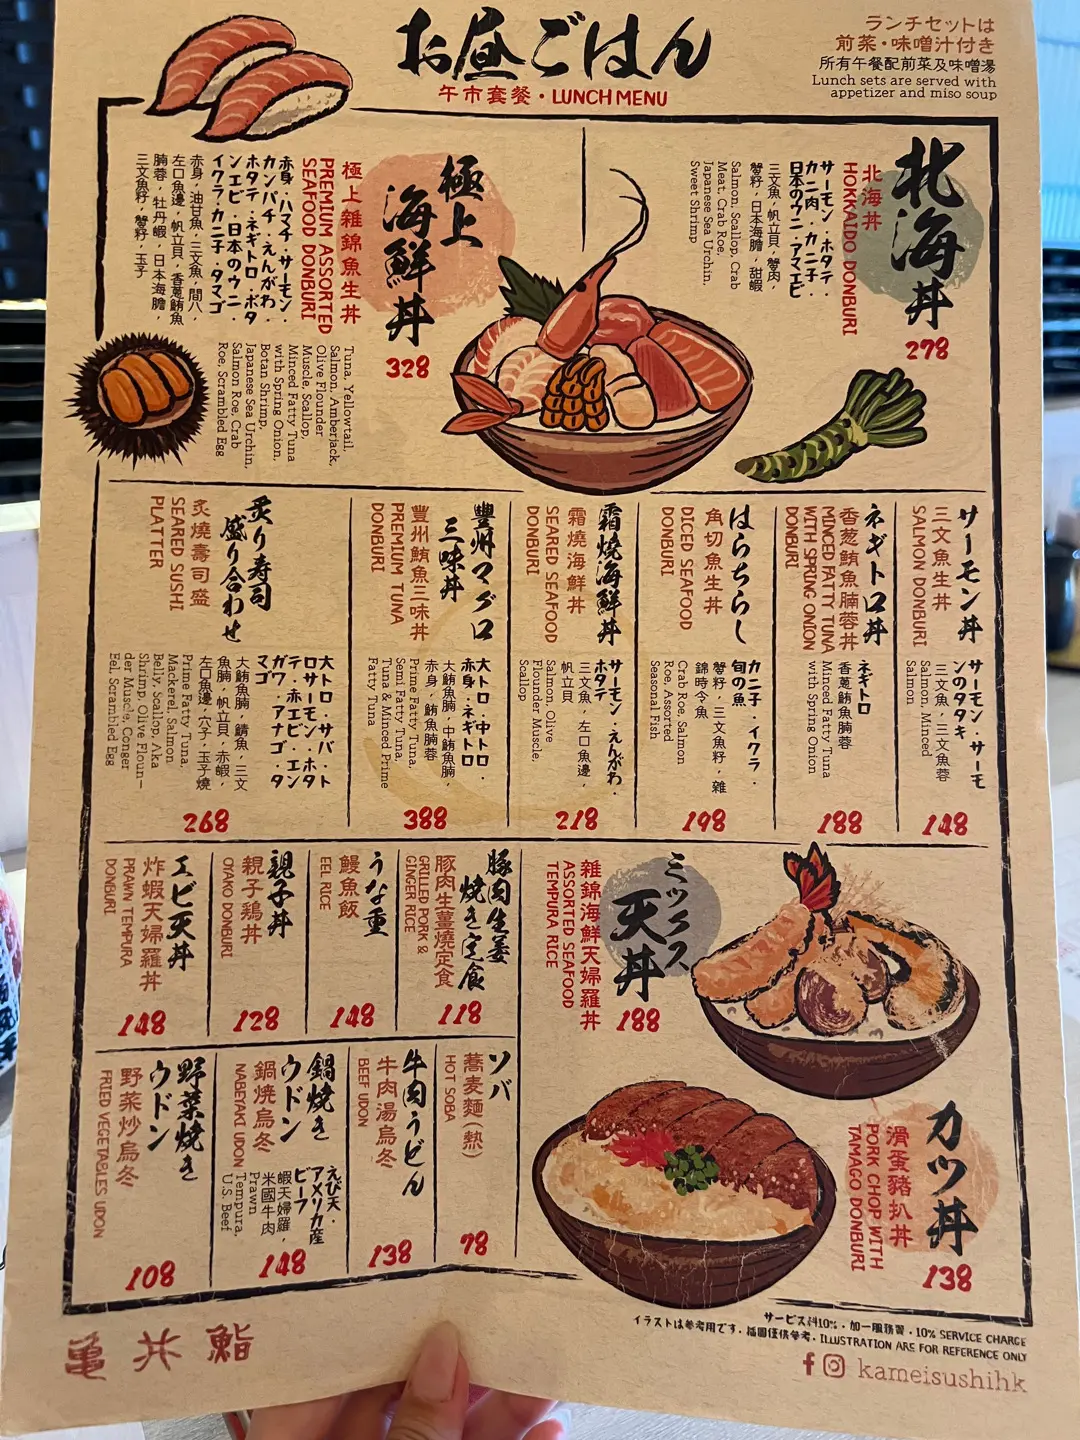 お昼ごはん
午市套餐・LUNCH MENU
ランチセットは
前菜・味噌汁付き
所有午餐配前菜及味噌湯
Lunch sets are served with
appetizer and miso soup
北海丼
北海丼
HOKKAIDO DONBURI
サーモン・ホタテ・
カニ肉・カニ子・
日本のウニ・アマエビ
三文魚，帆立貝，蟹肉，
蟹籽，日本海膽，甜蝦
Salmon, Scallop, Crab
Meat, Crab Roe,
Japanese Sea Urchin,
Sweet Shrimp
278
極上
海鮮丼
極上雜錦魚生丼
PREMIUM ASSORTED
SEAFOOD DONBURI
赤身・ハマチ・サーモン・
カンパチ・えんがわ・
ホタテ・ネギトロ・ボタ
ンエビ・日本のウニ・
イクラ・カニ子・タマゴ
赤身，油甘魚，三文魚，間八，
左口魚邊，帆立貝，香蔥鮪魚
腩蓉，牡丹蝦，日本海膽，
三文魚籽，蟹籽，玉子
Tuna, Yellowtail,
Salmon, Amberjack,
Olive Flounder
Muscle, Scallop,
Minced Fatty Tuna
with Spring Onion,
Botan Shrimp,
Japanese Sea Urchin,
Salmon Roe, Crab
Roe, Scrambled Egg
328
サーモン丼
三文魚生丼
SALMON DONBURI
サーモン・サーモ
ンのタタキ
三文魚，三文魚蓉
Salmon, Minced
Salmon
148
ネギトロ丼
香葱鮪魚腩蓉丼
MINCED FATTY TUNA
WITH SPRING ONION
DONBURI
ネギトロ
香蔥鮪魚腩蓉
Minced Fatty Tuna
with Spring Onion
188
はらちらし
角切魚生丼
DICED SEAFOOD
DONBURI
カニ子・イクラ・
旬の魚
蟹籽，三文魚籽，雜
錦時令魚
Crab Roe, Salmon
Roe, Assorted
Seasonal Fish
198
霜焼海鮮丼
霜燒海鮮丼
SEARED SEAFOOD
DONBURI
サーモン・えんがわ・
ホタテ
三文魚，左口魚邊，
帆立貝
Salmon, Olive
Flounder Muscle,
Scallop
218
豐州マグロ
三味丼
豐州鮪魚三味丼
PREMIUM TUNA
DONBURI
大トロ・中トロ・
赤身・ネギトロ
大鮪魚腩，中鮪魚腩，
赤身，鮪魚腩蓉
Prime Fatty Tuna,
Semi Fatty Tuna,
Tuna & Minced Prime
Fatty Tuna
388
炙り寿司
盛り合わせ
炙燒壽司盛
SEARED SUSHI
PLATTER
大トロ・サバ・ト
ロサーモン・ホタ
テ・赤エビ・エン
ガワ・アナゴ・タ
マゴ
大鮪魚腩，鯖魚，三文
魚腩，帆立貝，赤蝦，
左口魚邊，穴子，玉子燒
Prime Fatty Tuna,
Mackerel, Salmon
Belly, Scallop, Aka
Shrimp, Olive Floun-
der Muscle, Conger
Eel, Scrambled Egg
268
ミックス
天丼
雜錦海鮮天婦羅丼
ASSORTED SEAFOOD
TEMPURA RICE
188
豚肉生姜
焼き定食
豚肉生薑燒定食
GRILLED PORK &
GINGER RICE
118
うな重
鰻魚飯
EEL RICE
148
親子丼
親子鶏丼
OYAKO DONBURI
128
エビ天丼
炸蝦天婦羅丼
PRAWN TEMPURA
DONBURI
148
ソバ
蕎麦麵(熱)
HOT SOBA
78
牛肉うどん
牛肉湯烏冬
BEEF UDON
138
鍋焼き
ウドン
鍋燒烏冬
NABEYAKI UDON
えび天・
アメリカ産
ビーフ
蝦天婦羅，
米國牛肉
Prawn
Tempura,
U.S. Beef
148
野菜焼き
ウドン
野菜炒烏冬
FRIED VEGETABLES UDON
108
カツ丼
滑蛋豬扒丼
PORK CHOP WITH
TAMAGO DONBURI
138
サービス料10%・加一服務費・10% SERVICE CHARGE
イラストは参考用です・插圖僅供參考・ILLUSTRATION ARE FOR REFERENCE ONLY
kameisushihk
亀井鮨